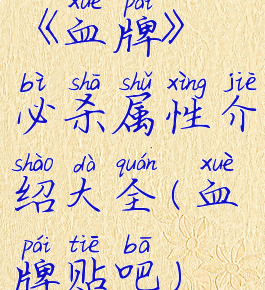 xuè pái
《血牌》
bì shā shǔ xìng jiè
必杀属性介
shào dà quán xuè
绍大全(血
pái tiē bā
牌贴吧)